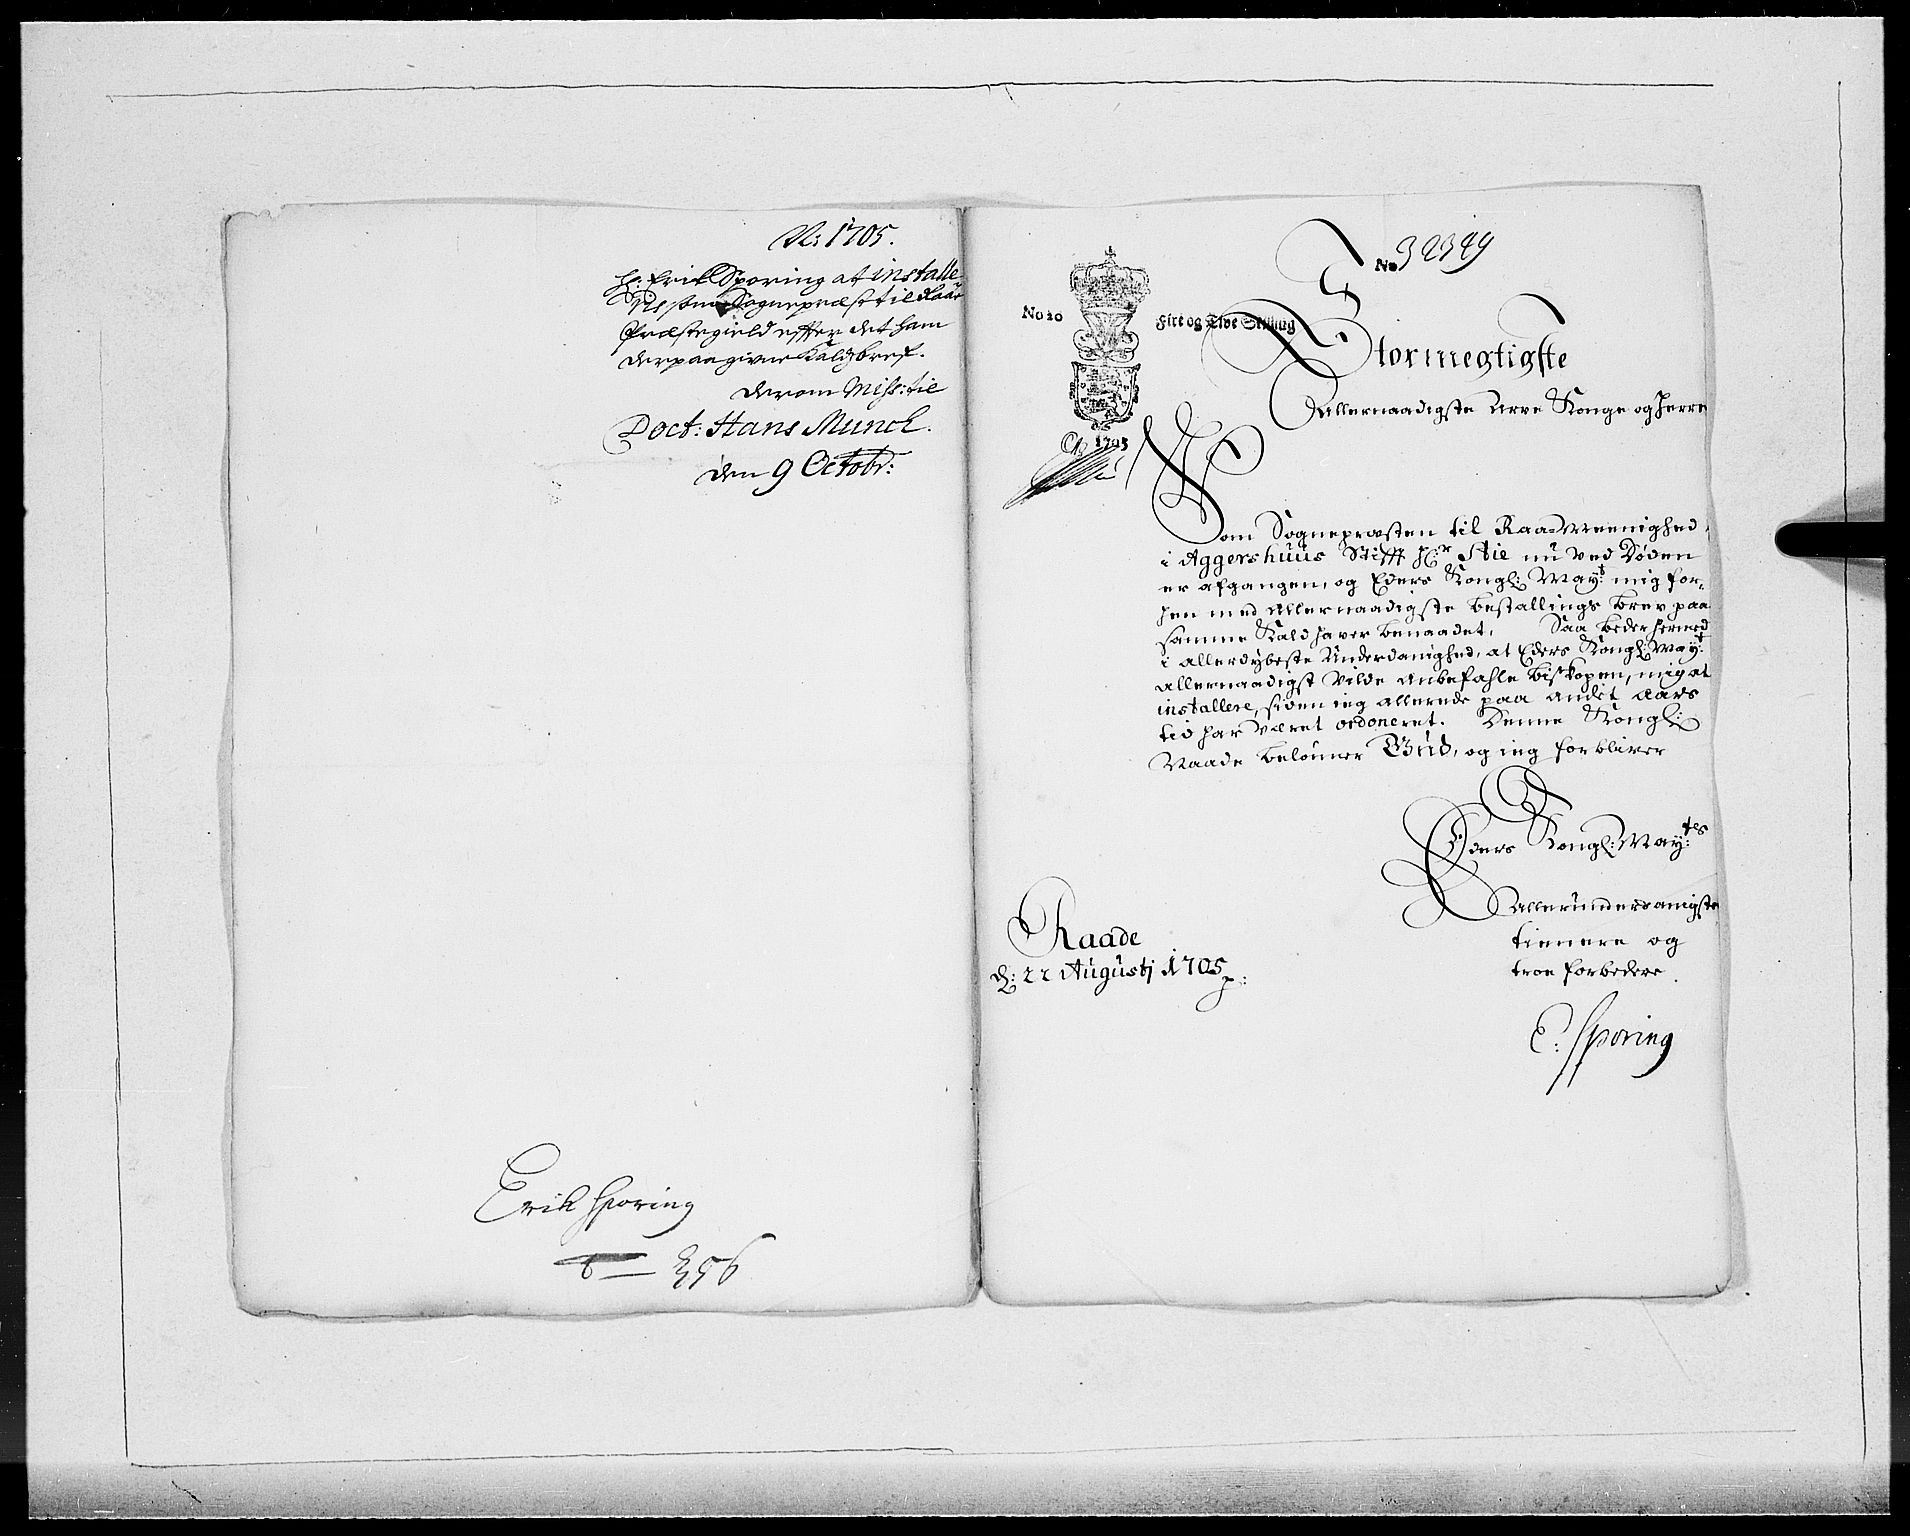 Ao 1705.
H: Erik Sporing at installe
res som Sognepræst til Raae
Præstegield effter det ham
derpaa givne Kaldsbref.
derom Miss: til
Doct: Hans Munch.
den 9 Octobr:
Erik Sporing
356
No 32349
No 20
Fire og Tive Skilling
1705
Stormegtigste
Allernaadigste Arve Konge og Herre
Som Sognepræsten til Raae Meenighed
i Aggershuus Stifft Hr Stie nu ved Døden
er afgangen, og Eders Kongl: Mayt: mig for-
hen med Allernaadigste bestallings brev paa
samme Kald haver benaadet, Saa beder hermed
i allerdybeste Underdanighed, at Eders Kongl: Mayt:
allernaadigst vilde anbefahle biskopen, mig at
installere, siden ieg allerede paa andet aars
tid har været ordoneret. Denne Kongl:
Naade belønner Gud, og ieg forbliver
Eders Kongl: Maytes:
Allerunderdanigste
tienere og
troe forbedere.
Raade
d: 22 Augustj 1705
E: Sporing